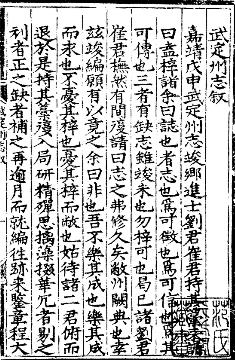 武定州志叙
嘉靖戊申武定州志竣鄉進士劉君崔君持其
曰盍梓諸余曰誌也者志也寫可徵也寫可信也
可傳也三者有缺志雖竣未也勿梓可也易已諸劉君
崔君撫然有間復請曰志之弗脩久矣敝州闕典也玄
兹竣編願有以竟之余曰非也吾不樂其成也樂其成
而未也不憂其梓也憂其梓而敝也姑待諸二君俯而
退於是持其藁復入局研精殫思摛藻掇華冗者剔之
利者正之缺者補之再逾月而就編往跡來鑒章程大